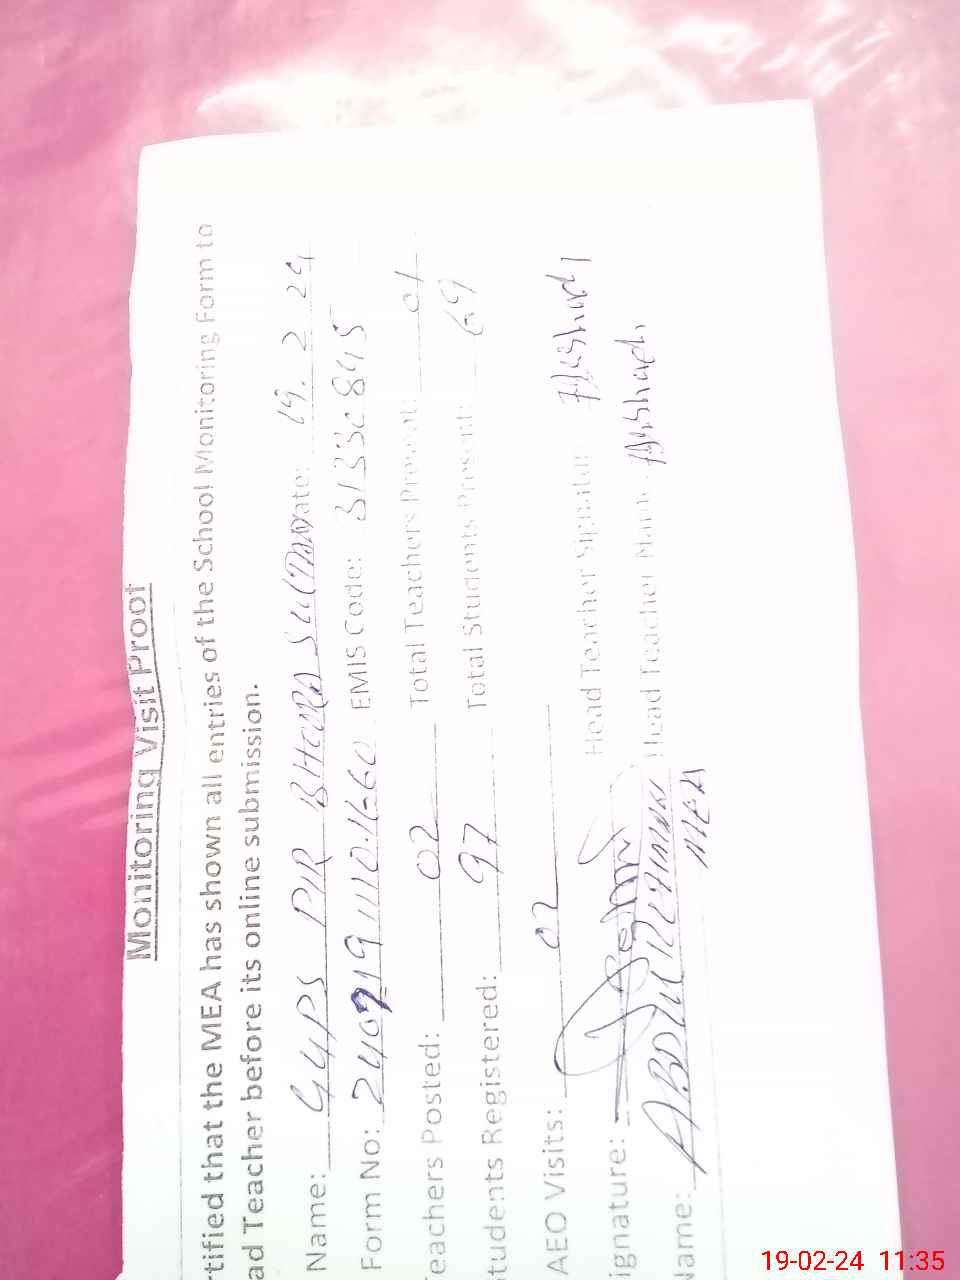 Monitoring Visit Proof
rtified that the MEA has shown all entries of the School Monitoring Form to
ad Teacher before its online submission.
Name: G4PS PIR BHORA Date: 19.2 24
Form No: EMIS Code: 31330845
eachers Posted: 02 Total Teachers Present: 01
tudents Registered: 97 Total Students Present: 69
AEO Visits: 02
ignature: Head Teacher Signatur
Name: ABDUL Head Teacher Nam
MEA
19-02-24 11:35